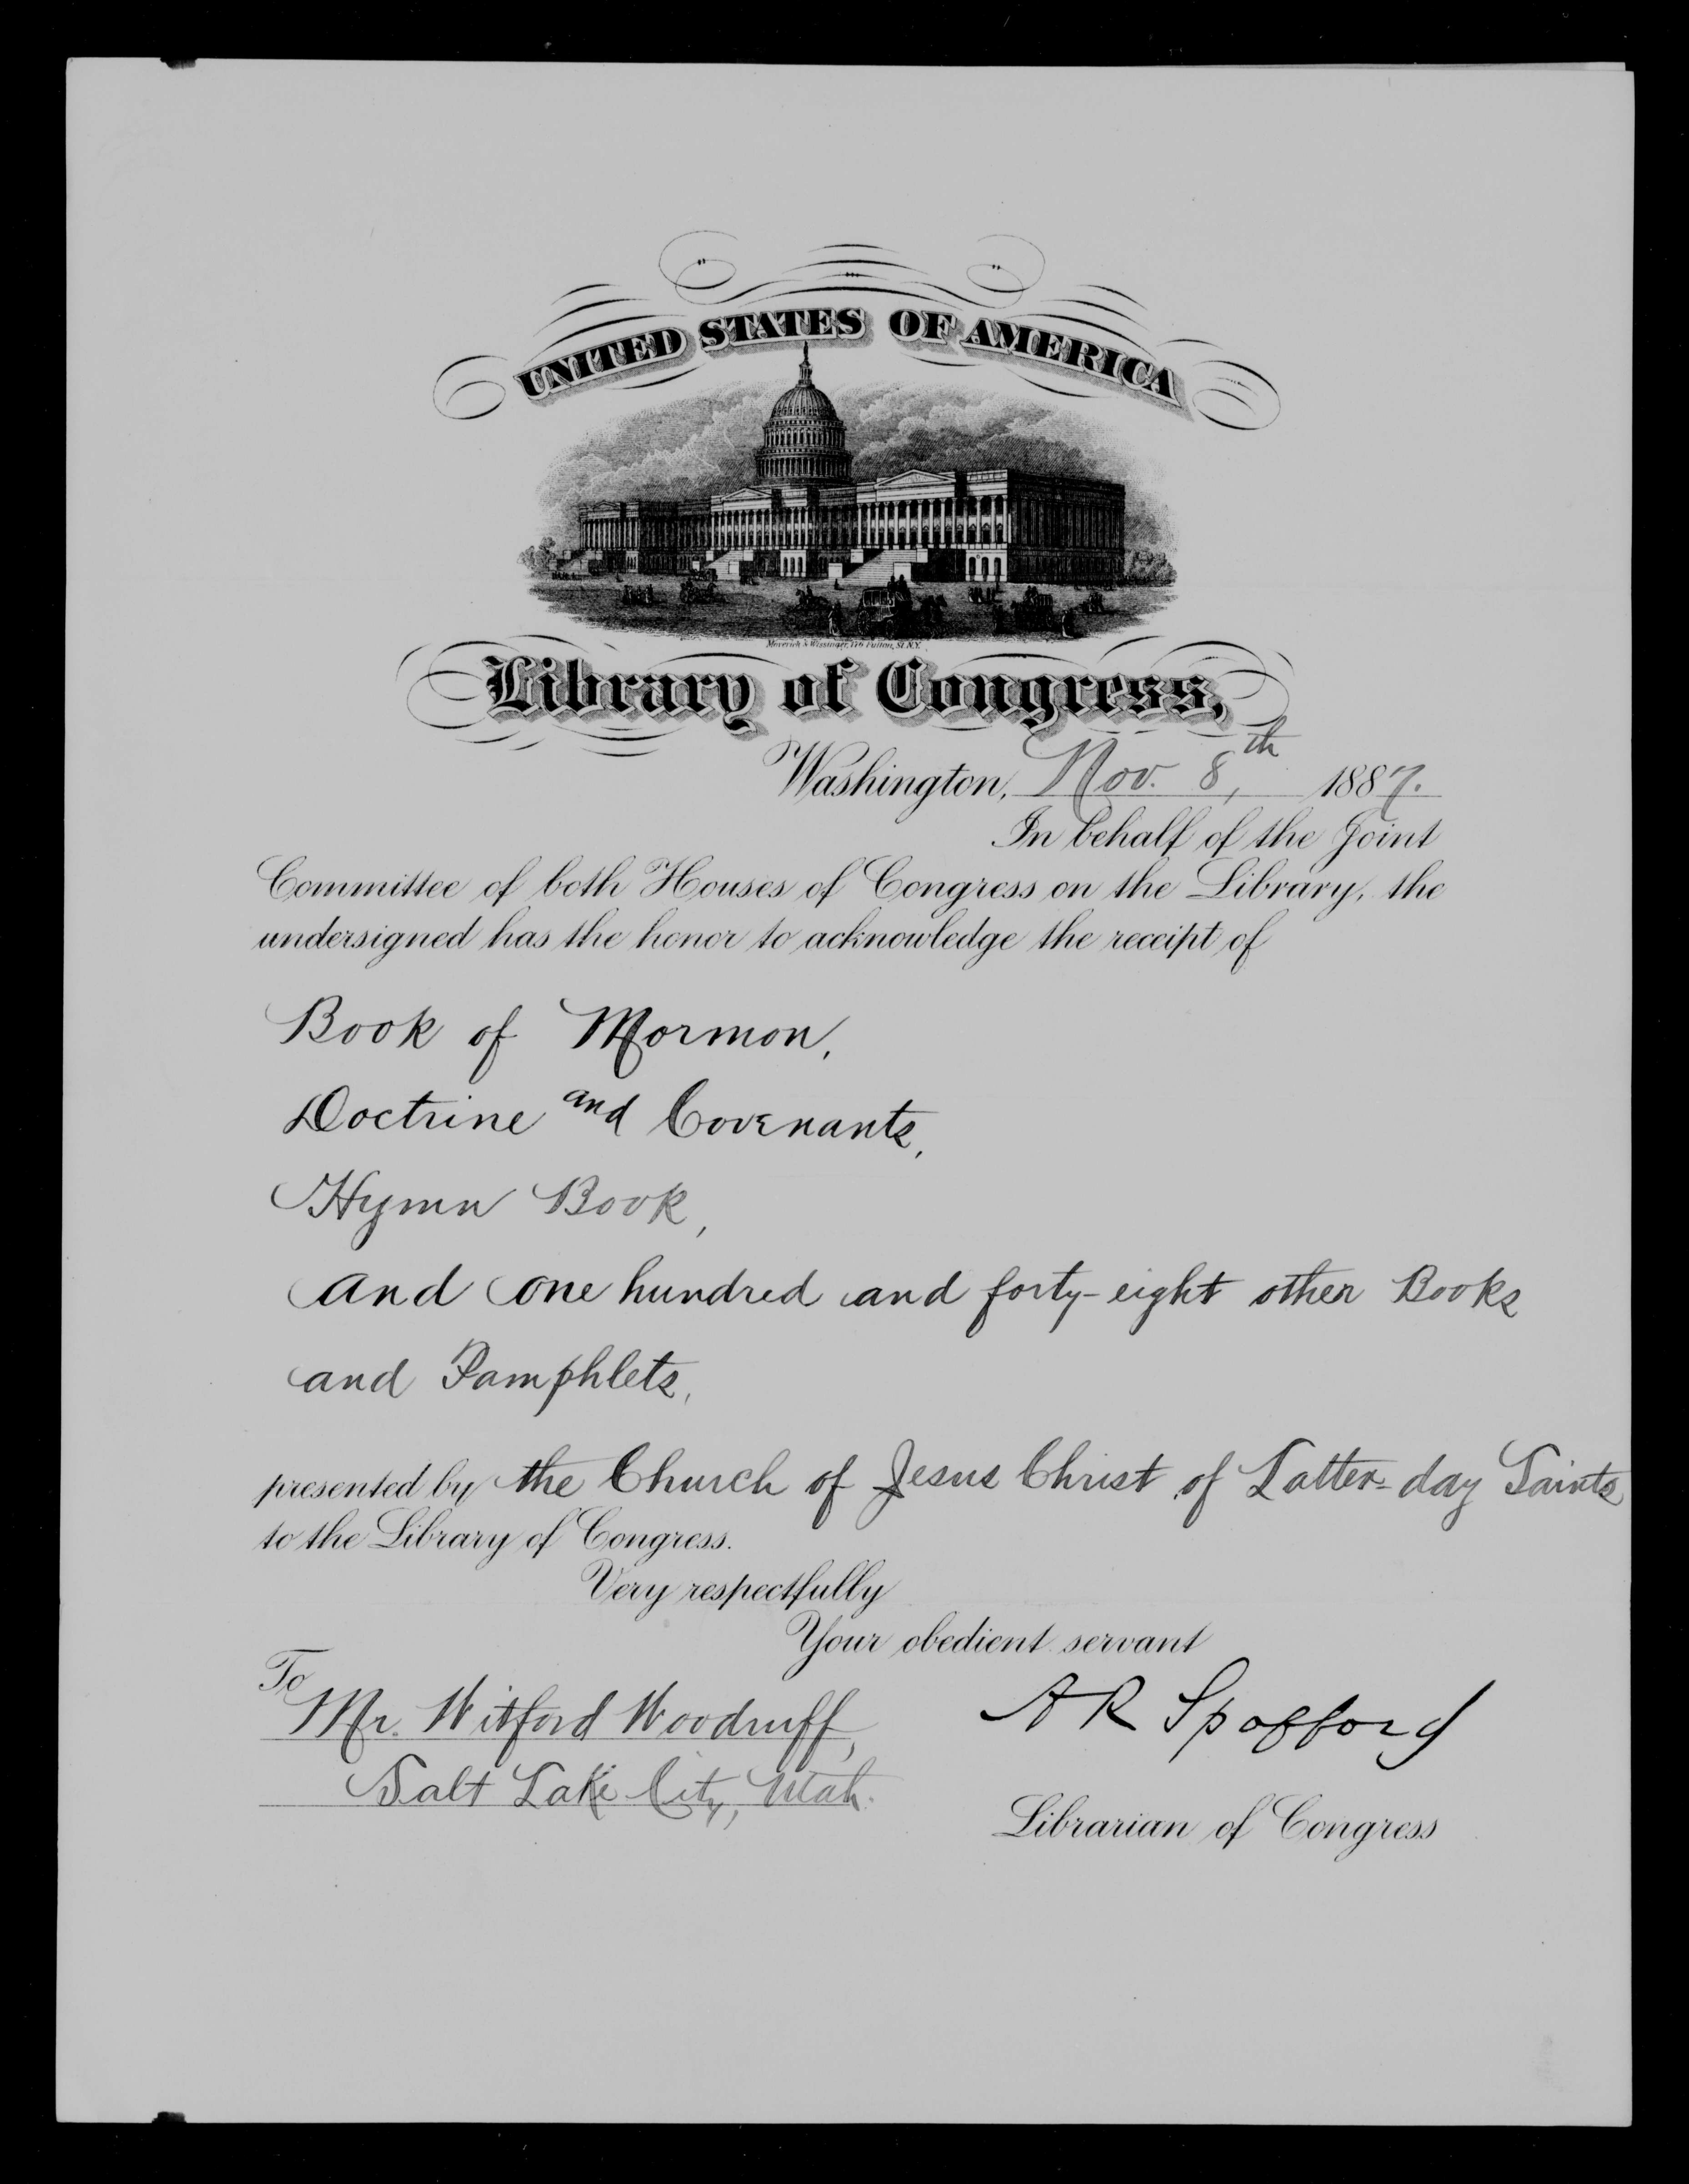 UNITED STATES OF AMERICA
Maverick & Wissinger, 176 Fulton, St. N.Y.
Library of Congress,
Washington, Nov. 8th, 1887.
In behalf of the Joint
Committee of both Houses of Congress on the Library, the
undersigned has the honor to acknowledge the receipt of
Book of Mormon,
Doctrine and Covenants,
Hymn Book,
And one hundred and forty-eight other Books
and Pamphlets,
presented by the Church of Jesus Christ of Latter-day Saints
to the Library of Congress.
Very respectfully
Your obedient servant
To
Mr. Witford Woodruff,
Salt Lake City, Utah.
A R Spofford
Librarian of Congress